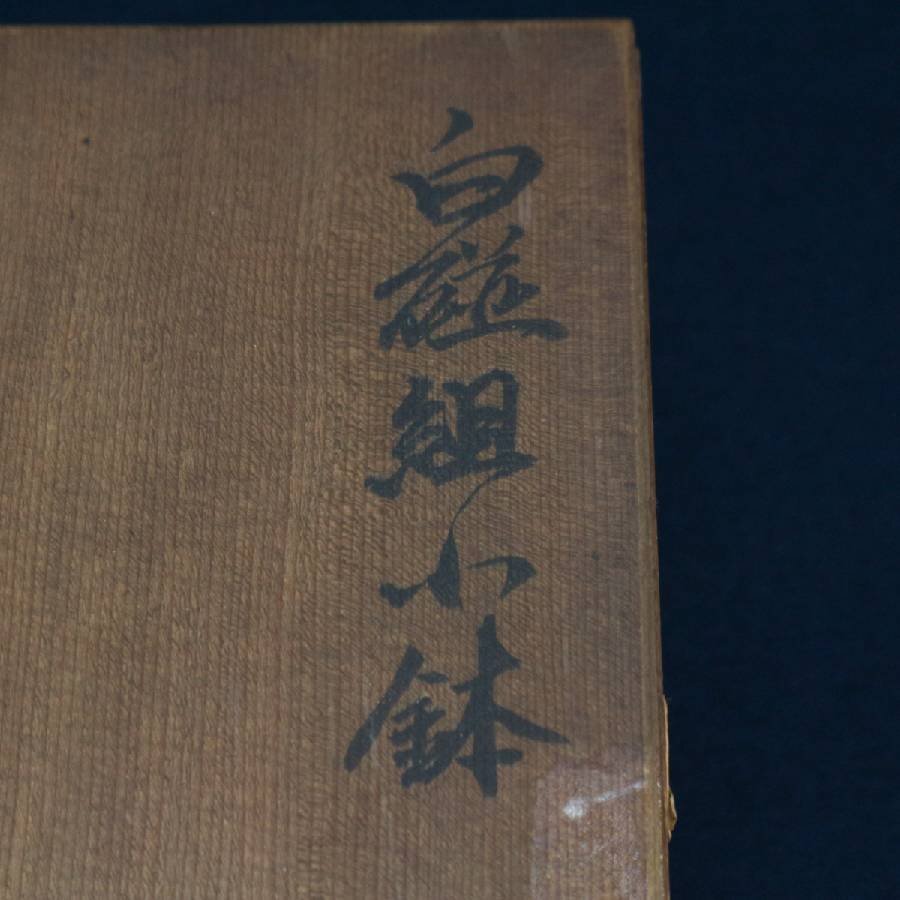 白磁組小鉢